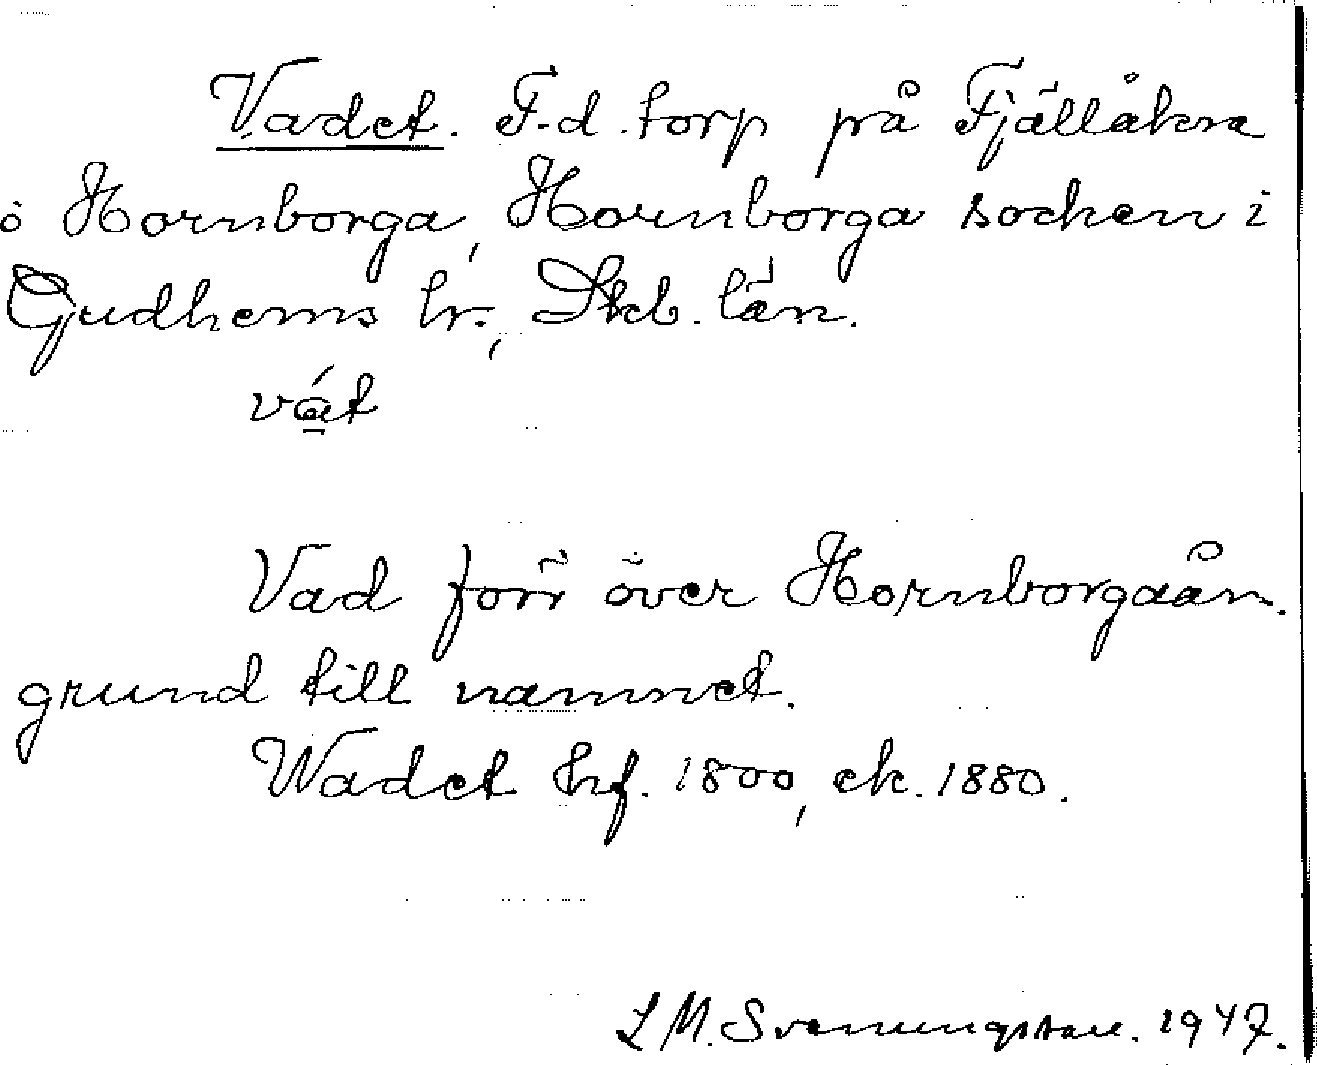 Vadet. F.d. torp på Fjällåkra
ö Hornborga, Hornborga socken i
Gudhems hr., Skb. län.
vát
Vad förr över Hornborgaån.
grund till namnet.
Wadet hf. 1800, ek. 1880.
L M. Svenungsson. 1947.